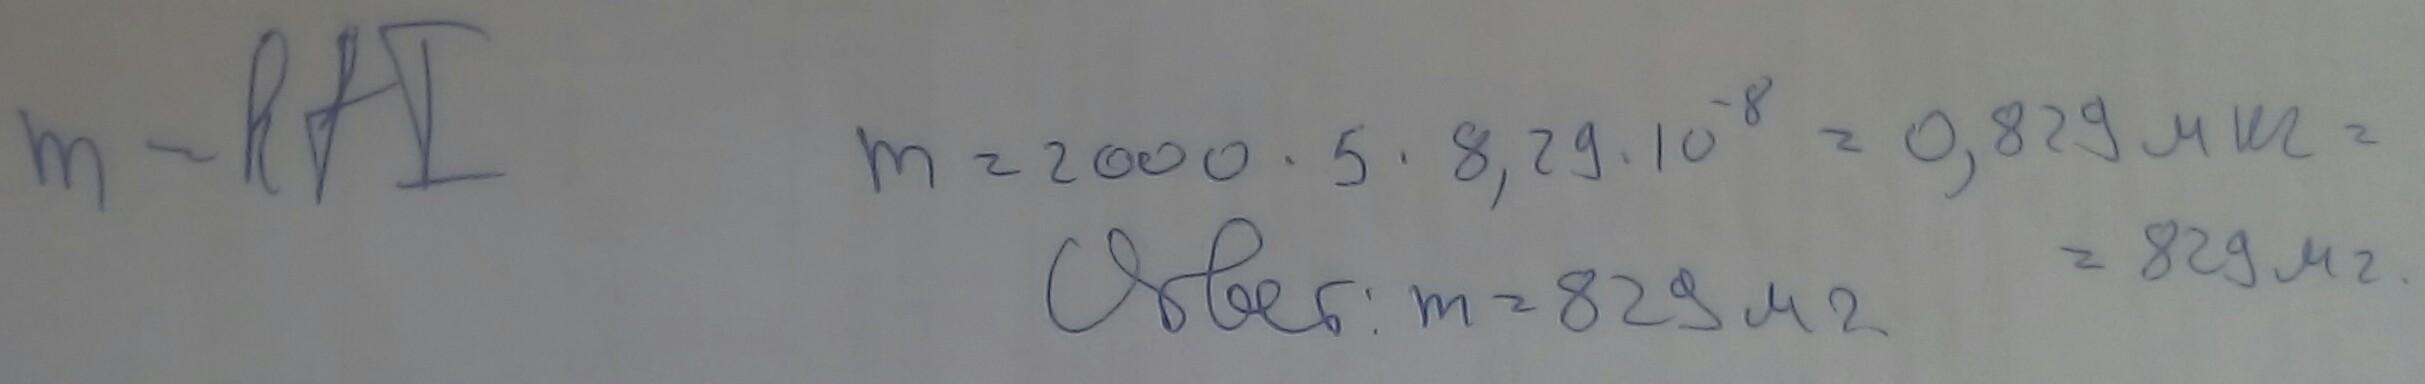 m = ktI
m = 2000 · 5 · 8,29 · 10⁻⁸ = 0,829 мкг =
= 829 мг.
Ответ: m = 829 мг